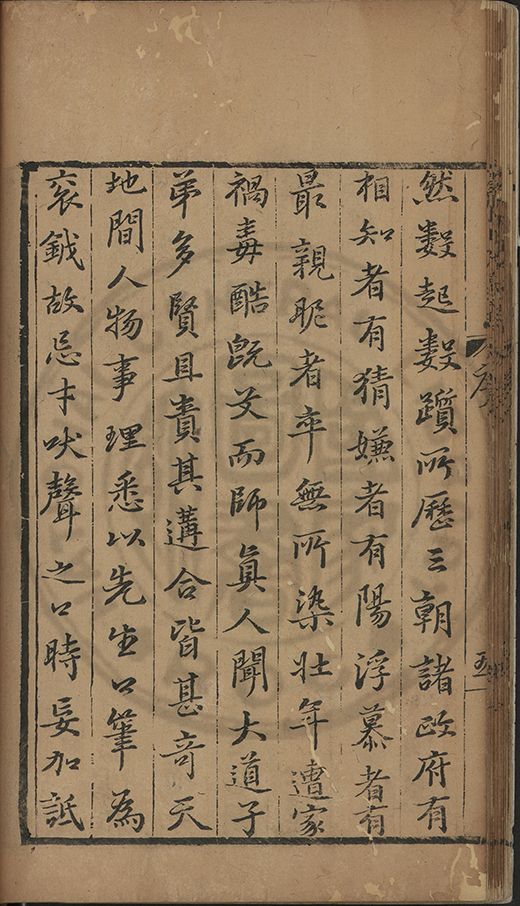 然數起數躓所歷三朝諸政府有
相知者有猜嫌者有陽浮慕者有
最親昵者卒無所染壯年遭家
禍毒酷既艾而師眞人聞大道子
弟多賢且貴其遘合皆甚奇天
地間人物事理悉以先生口筆為
袞鉞故忌才吠聲之口時妄加詆
序
五